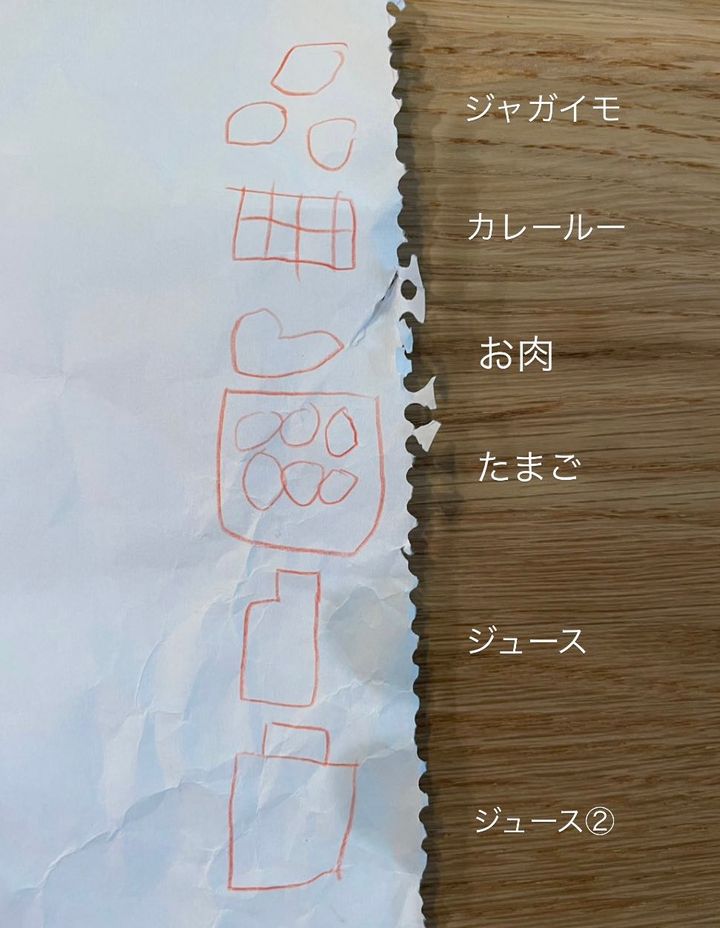 ジャガイモ
カレールー
お肉
たまご
ジュース
ジュース②